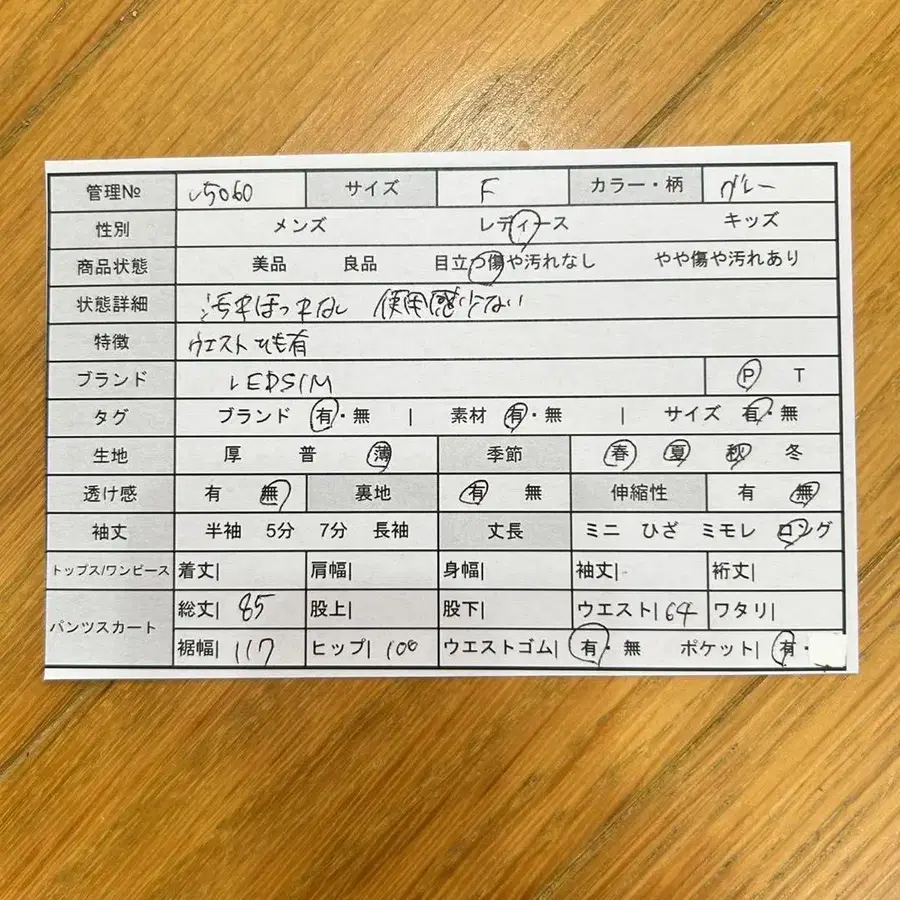 管理№ い5060 サイズ F カラー・柄 グレー
性別 メンズ レディース キッズ
商品状態 美品 良品 目立つ傷や汚れなし やや傷や汚れあり
状態詳細 汚れほつれなし 使用感少ない
特徴 ウエストひも有
ブランド LEDSIM P T
タグ ブランド 有・無 | 素材 有・無 | サイズ 有・無
生地 厚 普 薄 季節 春 夏 秋 冬
透け感 有 無 裏地 有 無 伸縮性 有 無
袖丈 半袖 5分 7分 長袖 丈長 ミニ ひざ ミモレ ロング
トップス/ワンピース 着丈| 肩幅| 身幅| 袖丈| 裄丈|
パンツスカート 総丈| 85 股上| 股下| ウエスト| 64 ワタリ|
裾幅| 117 ヒップ| 100 ウエストゴム| 有・無 ポケット| 有・